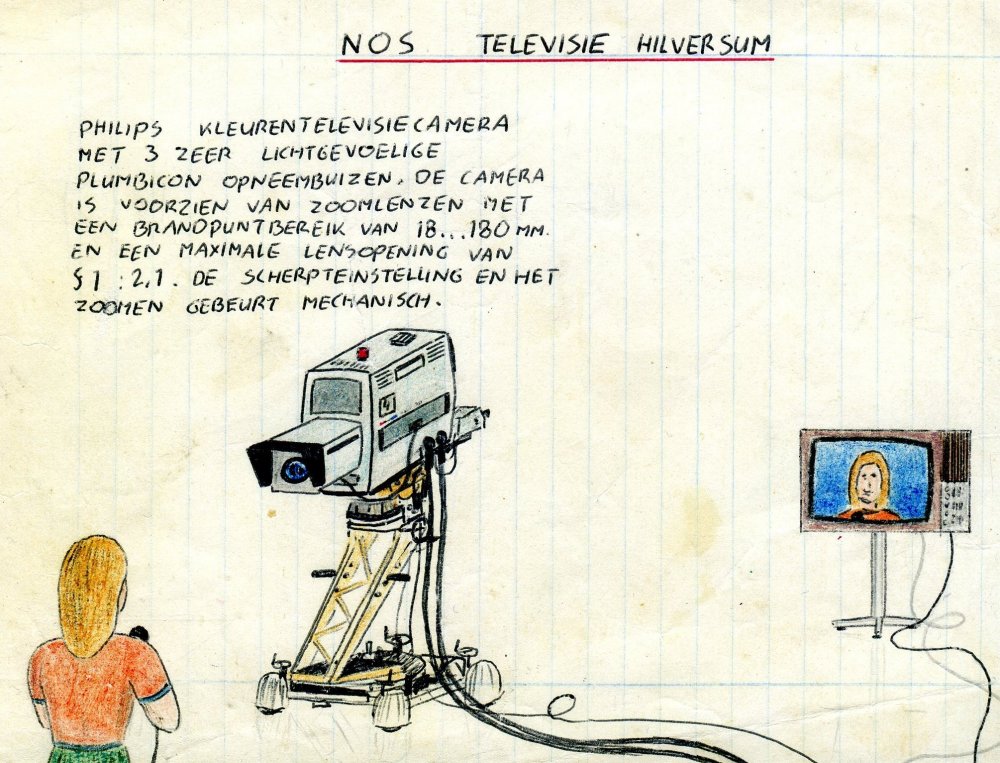 NOS TELEVISIE HILVERSUM
PHILIPS KLEURENTELEVISIECAMERA
MET 3 ZEER LICHTGEVOELIGE
PLUMBICON OPNEEMBUIZEN. DE CAMERA
IS VOORZIEN VAN ZOOMLENZEN MET
EEN BRANDPUNTBEREIK VAN 18...180 MM.
EN EEN MAXIMALE LENSOPENING VAN
§ 1 : 2,1. DE SCHERPTEINSTELLING EN HET
ZOOMEN GEBEURT MECHANISCH.
4